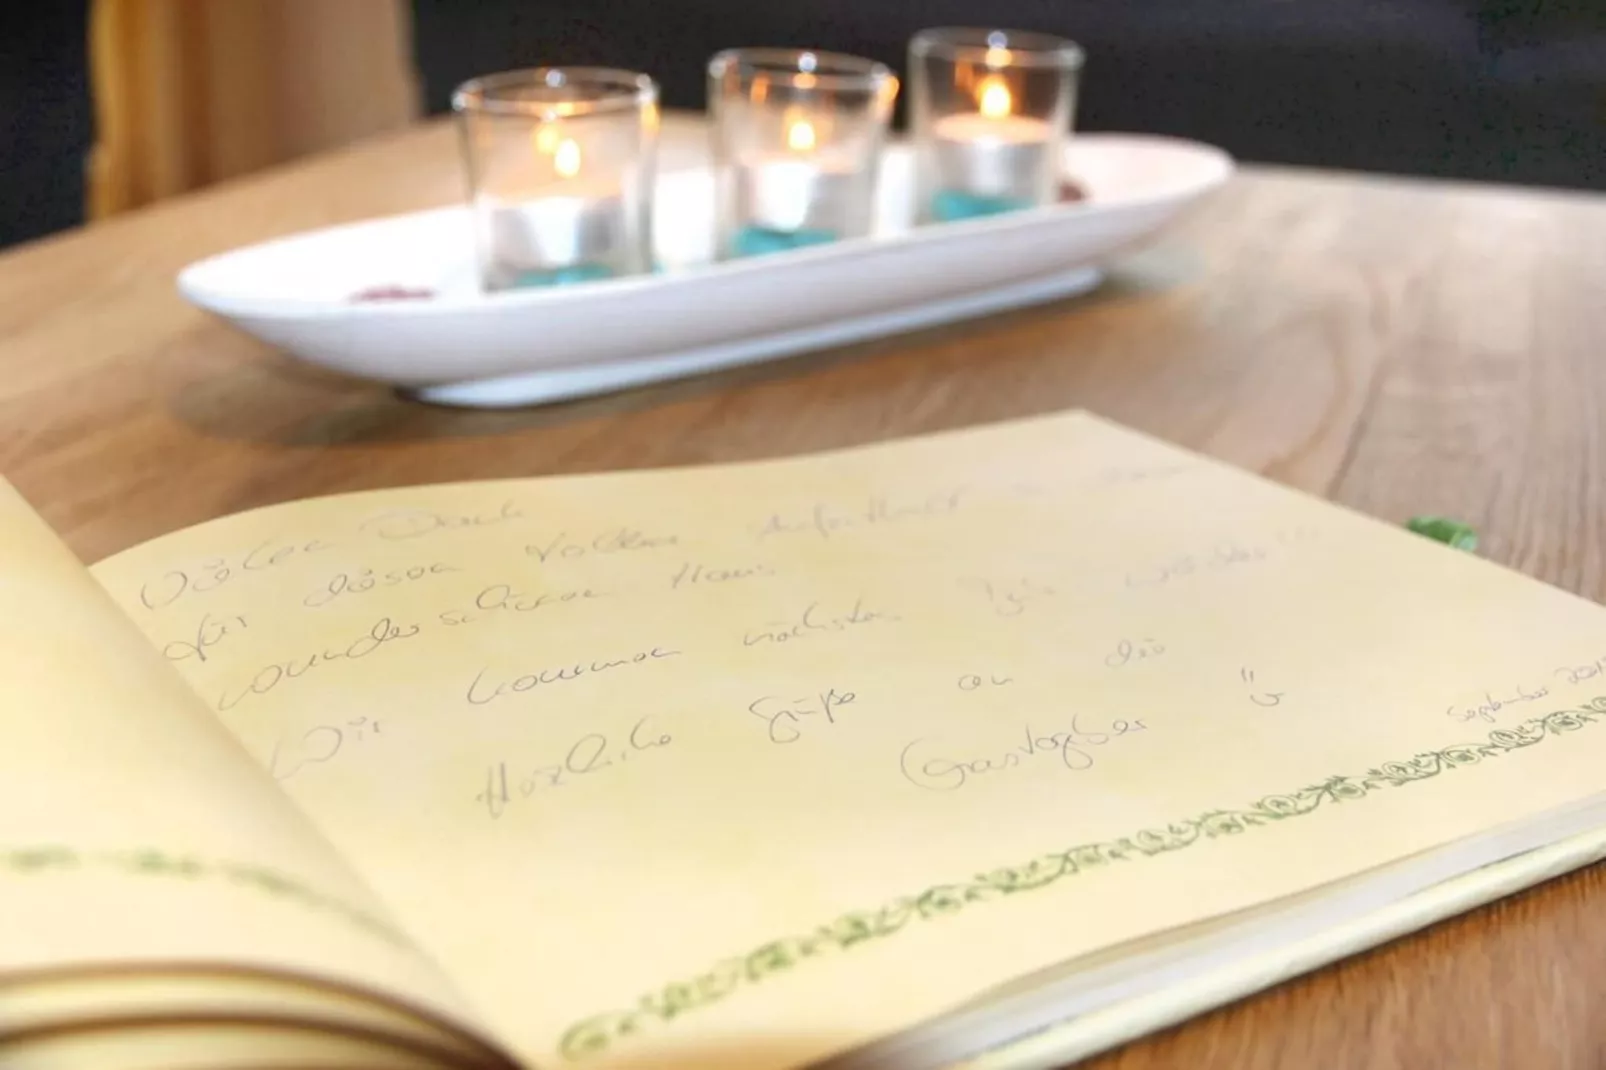 Vielen Dank
für diesen tollen Aufenthalt in diesem
wunderschönen Haus
Wir kommen nächstes Jahr wieder
Herzliche Grüße an die
Gastgeber
September